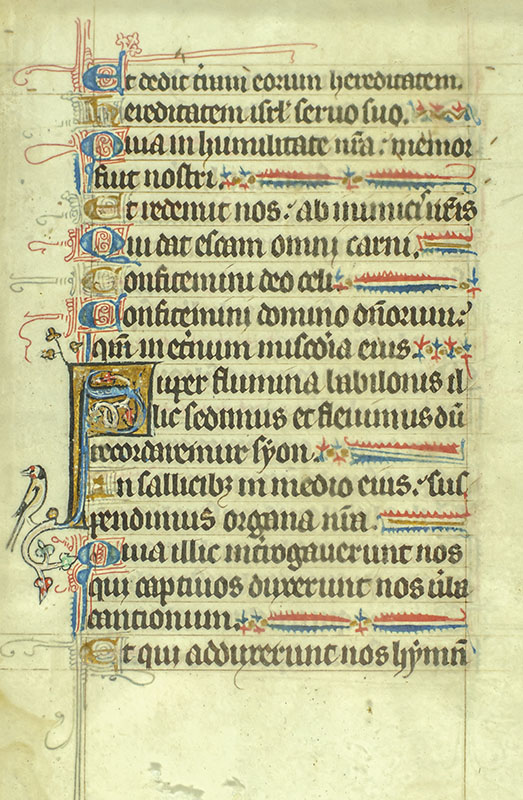 Et dedit t̄rām eorum hereditatem.
Hereditatem isrł seruo suo.
Quia in humilitate nr̄a: memor
fuit nostri.
Et redemit nos: ab inimicis nr̄is
Qui dat escam omni carni.
Confitemini deo celi.
Confitemini domino dn̄orum:
qm̄ in et̄num mis̄cdia eius
Super flumina babilonis il
lic sedimus et fleuimus dū
recordaremur syon.
In sallicibꝫ in medio eius: sus
pendimus organa nr̄a.
Quia illic int̄rogauerunt nos
qui captiuos duxerunt nos ūba
cantionum.
Et qui adduxerunt nos hẏmn̄